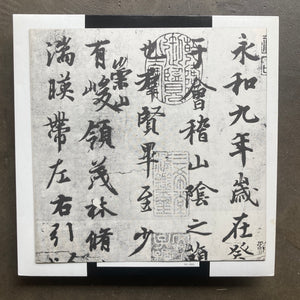 永和九年歲在癸
于會稽山陰之
也羣賢畢至少
崇山
有峻領茂林脩
湍暎帶左右引